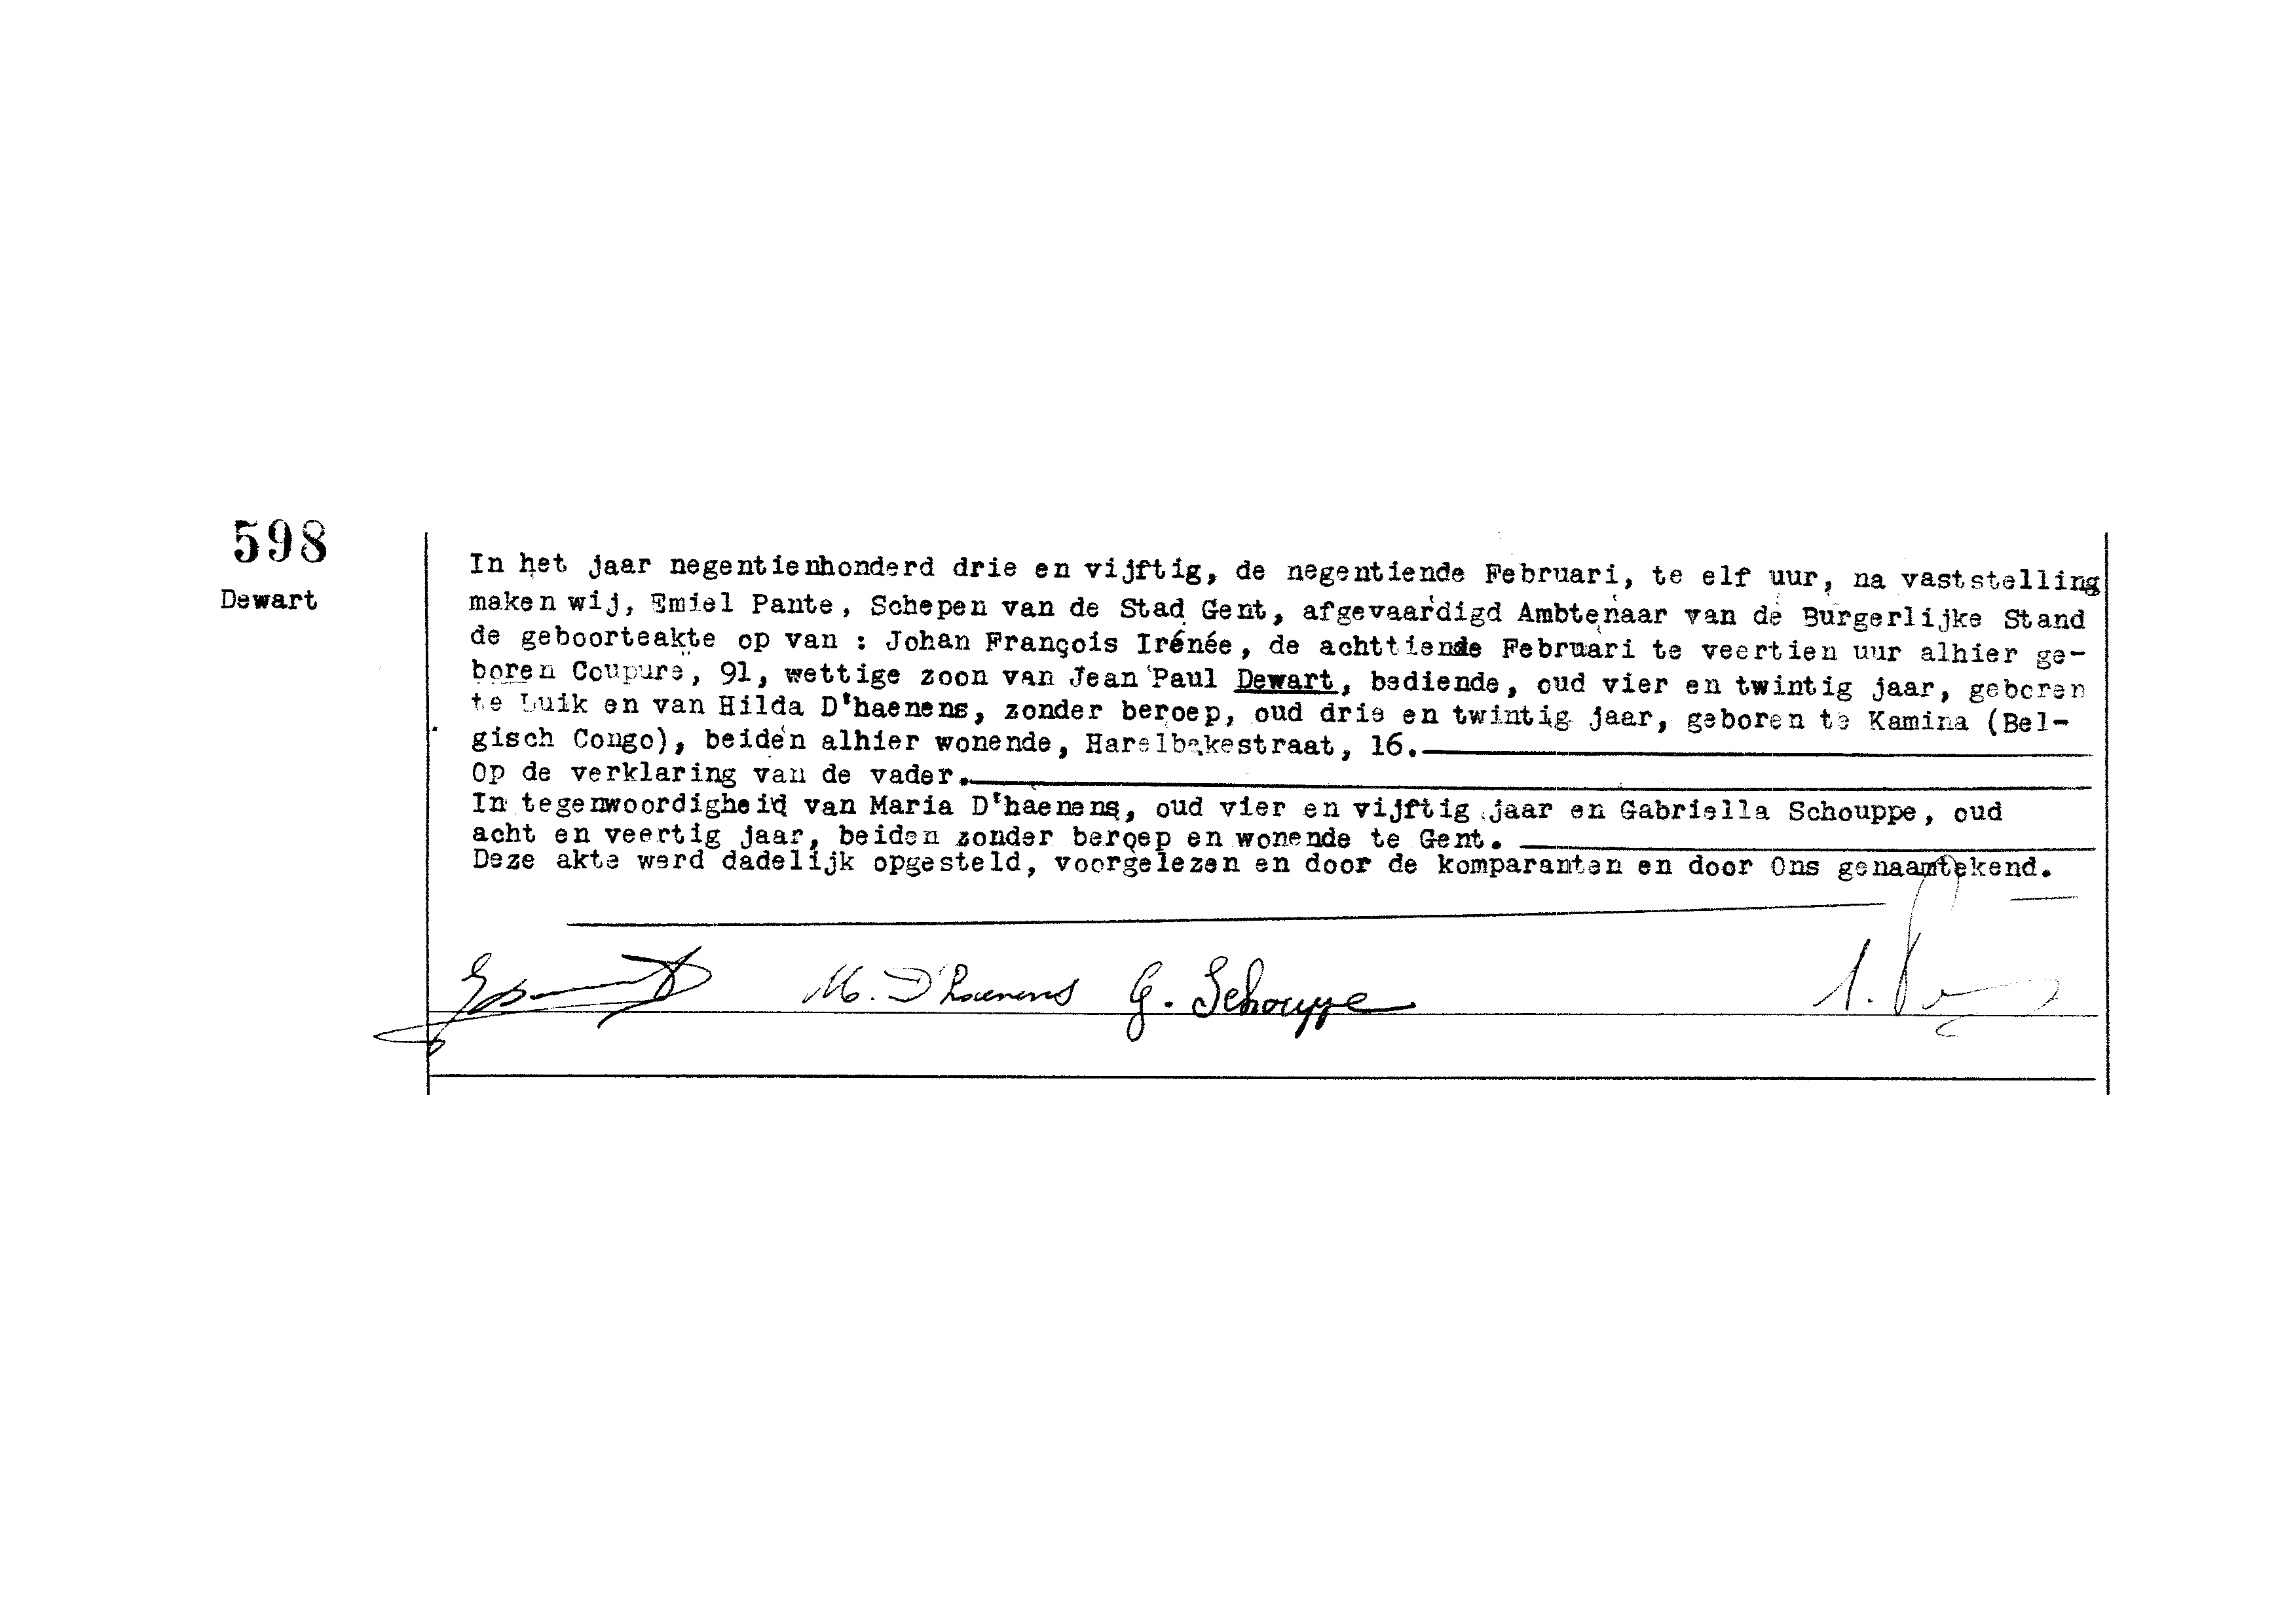 598
Dewart
In het jaar negentienhonderd drie en vijftig, de negentiende Februari, te elf uur, na vaststelling
maken wij, Emiel Pante, Schepen van de Stad Gent, afgevaardigd Ambtenaar van de Burgerlijke Stand
de geboorteakte op van : Johan François Irénée, de achttiende Februari te veertien uur alhier ge-
boren Coupure, 91, wettige zoon van Jean Paul Dewart, bediende, oud vier en twintig jaar, geboren
te Luik en van Hilda D'haenens, zonder beroep, oud drie en twintig jaar, geboren te Kamina (Bel-
gisch Congo), beiden alhier wonende, Harelbekestraat, 16.
Op de verklaring van de vader.
In tegenwoordigheid van Maria D'haenens, oud vier en vijftig jaar en Gabriella Schouppe, oud
acht en veertig jaar, beiden zonder beroep en wonende te Gent.
Deze akte werd dadelijk opgesteld, voorgelezen en door de komparanten en door Ons genaamtekend.
M. D'haenens G. Schouppe